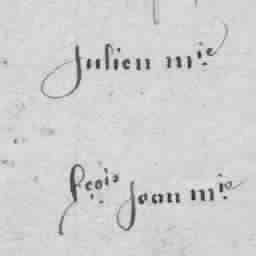 Julien m.ie
fcois Jean m.ie